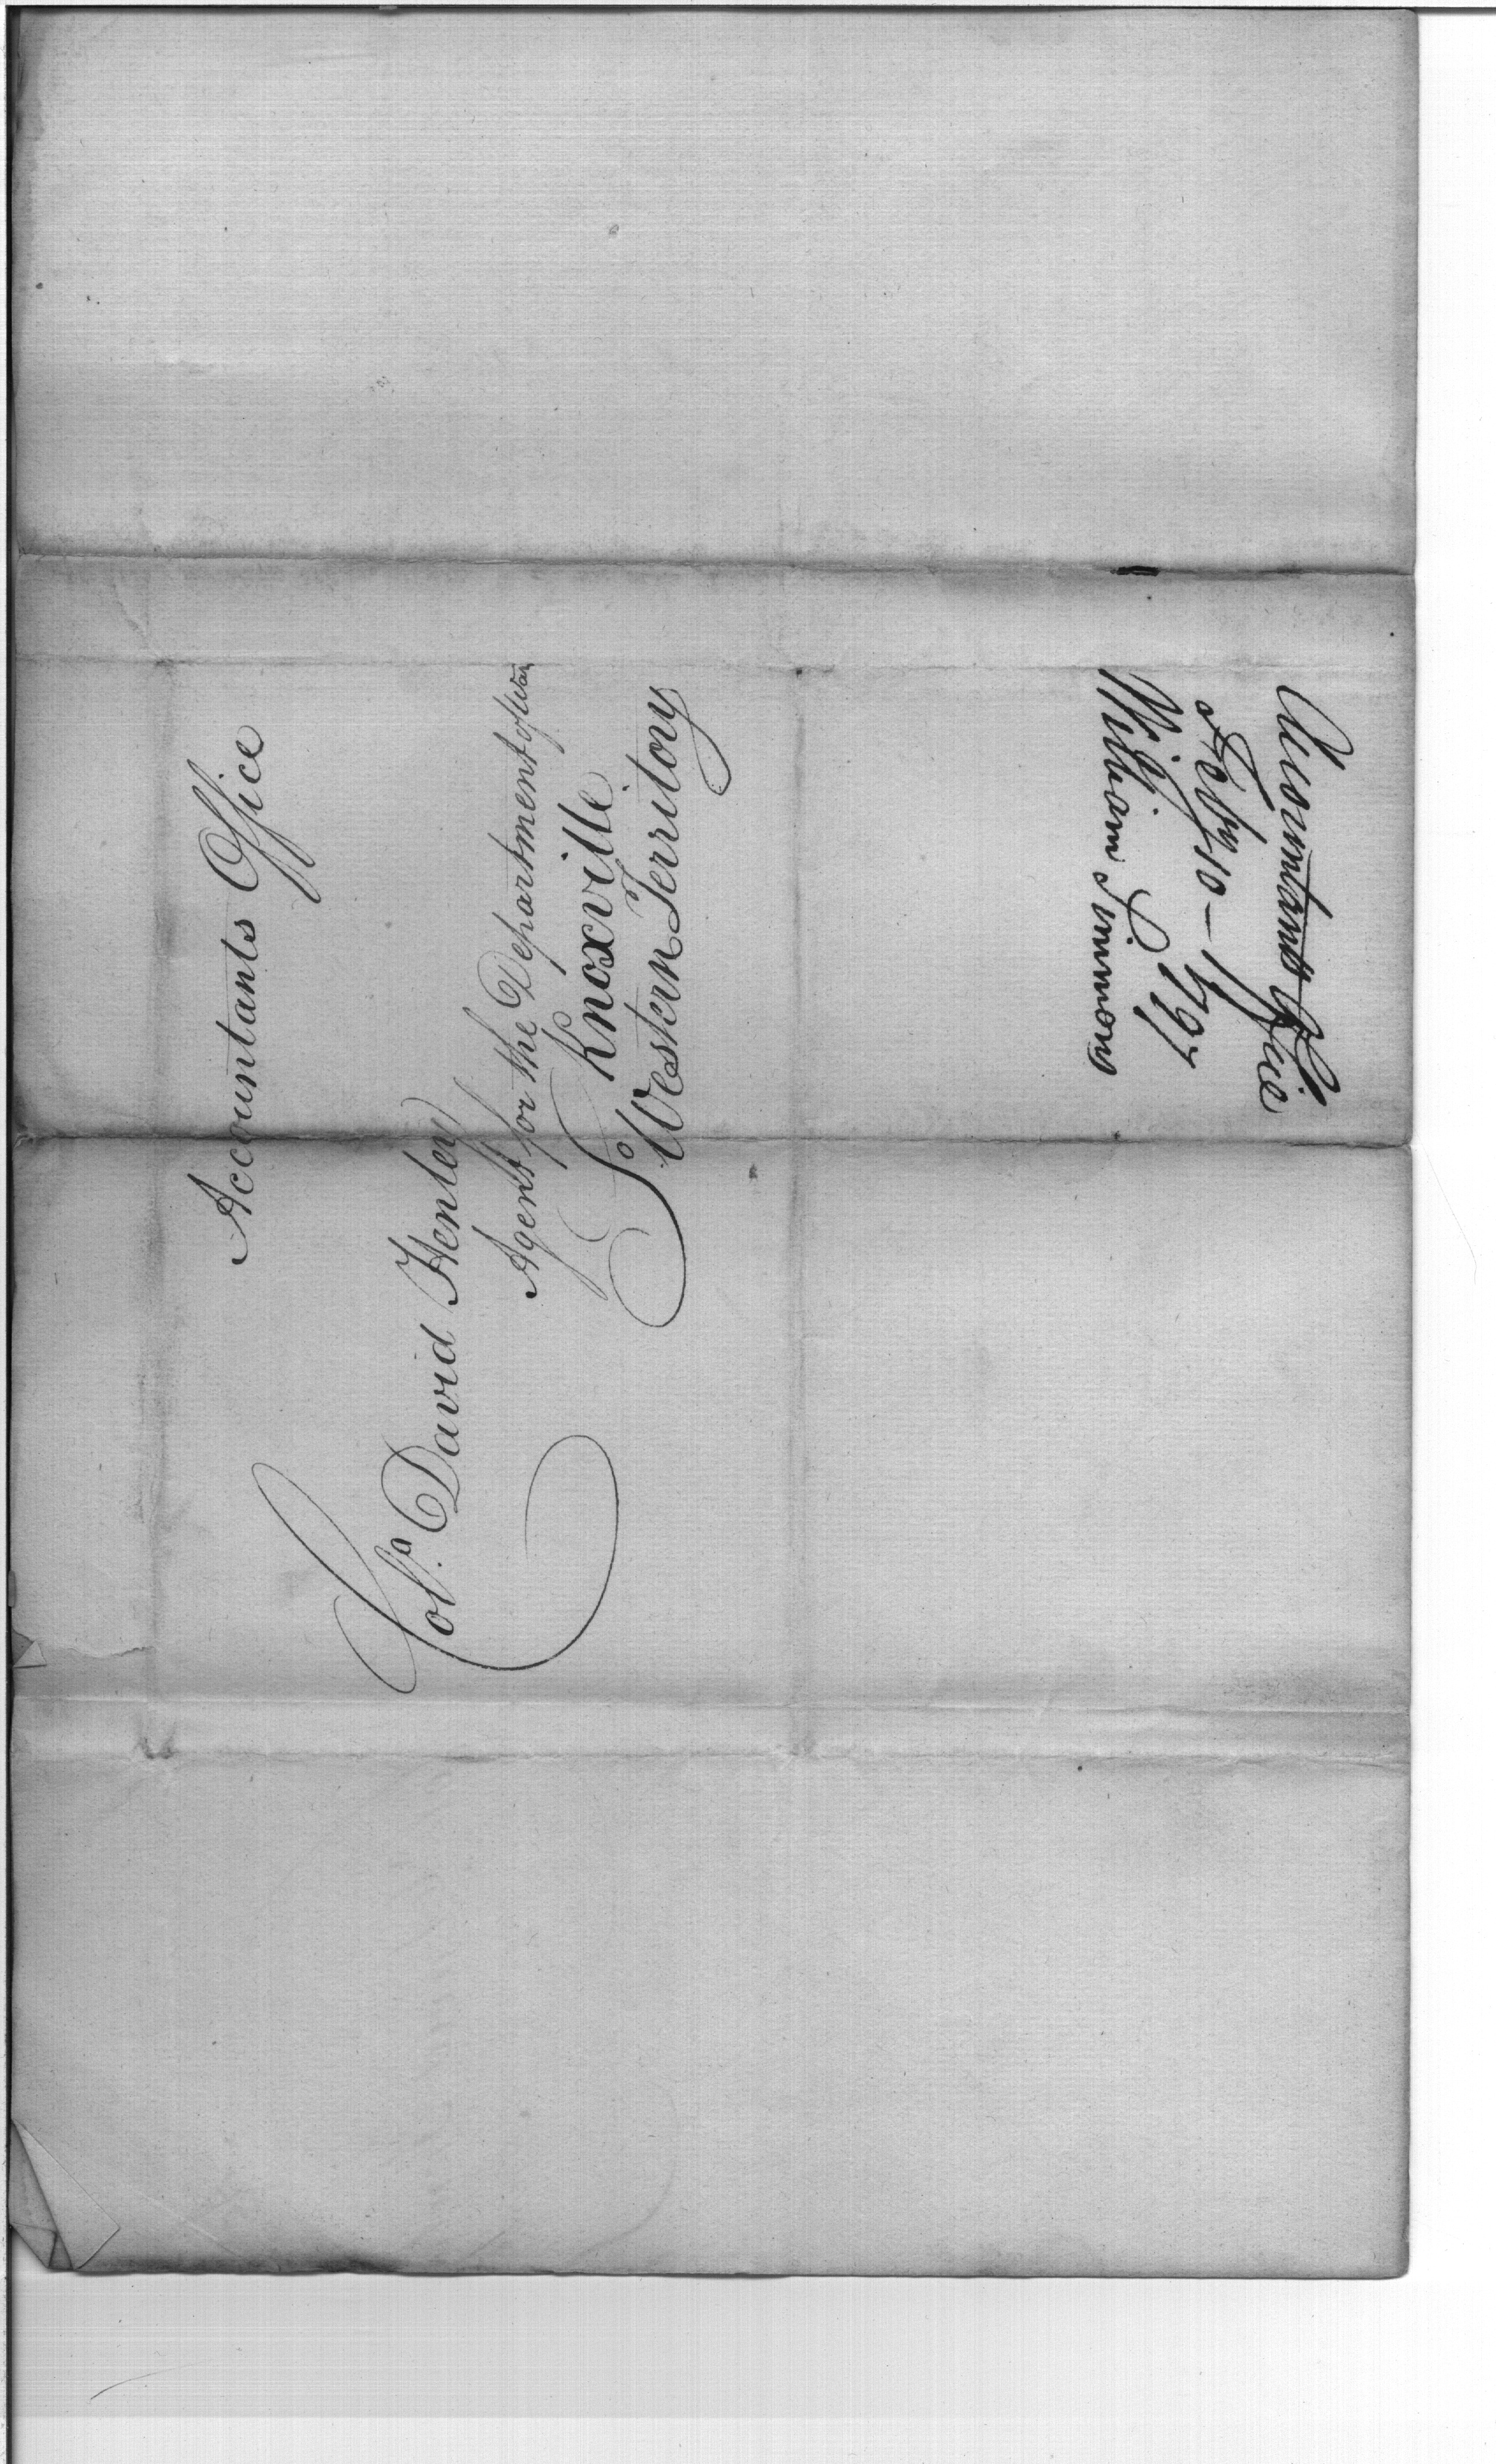 Accountants Office
Colo. David Henley
Agent for the Department of War
Knoxville
So Western Territory
Accountants Office
Feby 10 - 1797
William Simmons